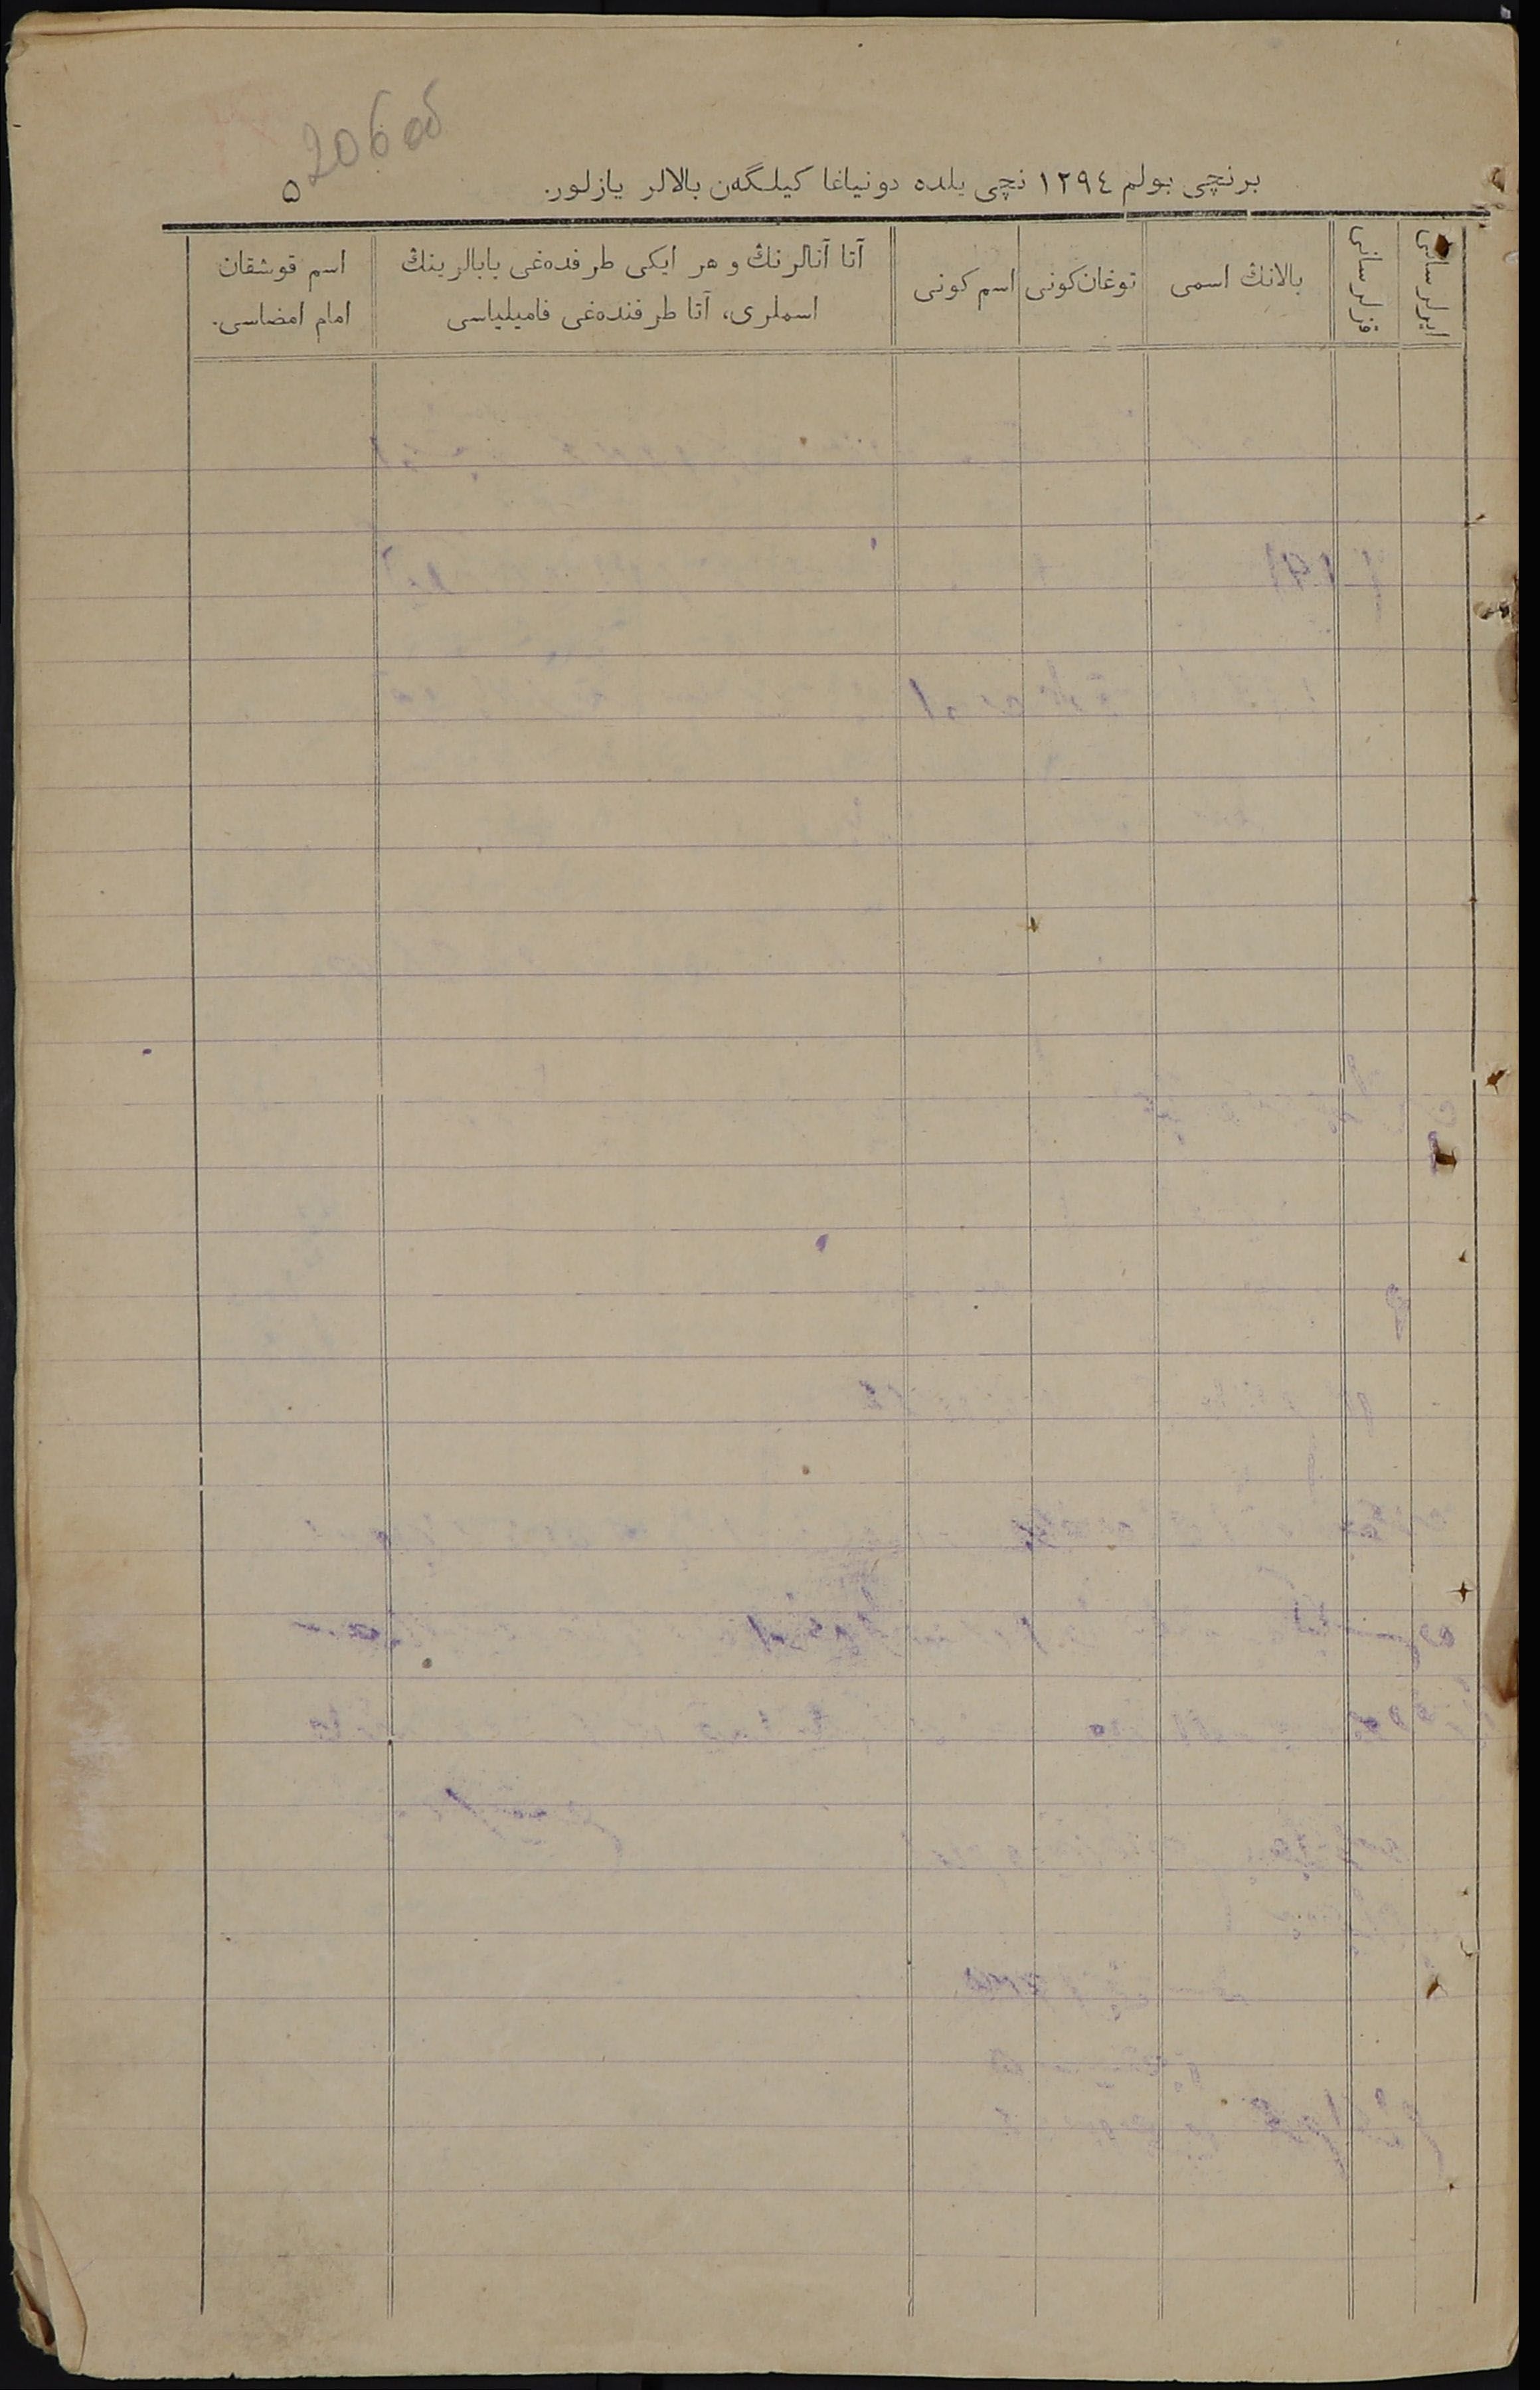 206 об
برنچی بولم ١٢٩٤ نچی یلده دونیاغا کیلگەن بالالر یازلور.
۵
ایرلر سانی
قزلر سانی
بالانڭ اسمی
توغان کونی
اسم کونی
آتا آنالرنڭ و هر ایکی طرفده‌غی بابالرینڭ
اسملری، آتا طرفنده‌غی فامیلیاسی
اسم قوشقان
امام امضاسی.